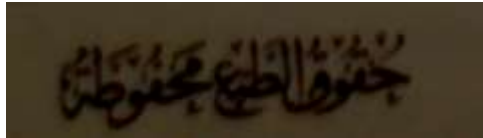 حُقُوقُ الطَّبْعِ مَحْفُوظَةٌ